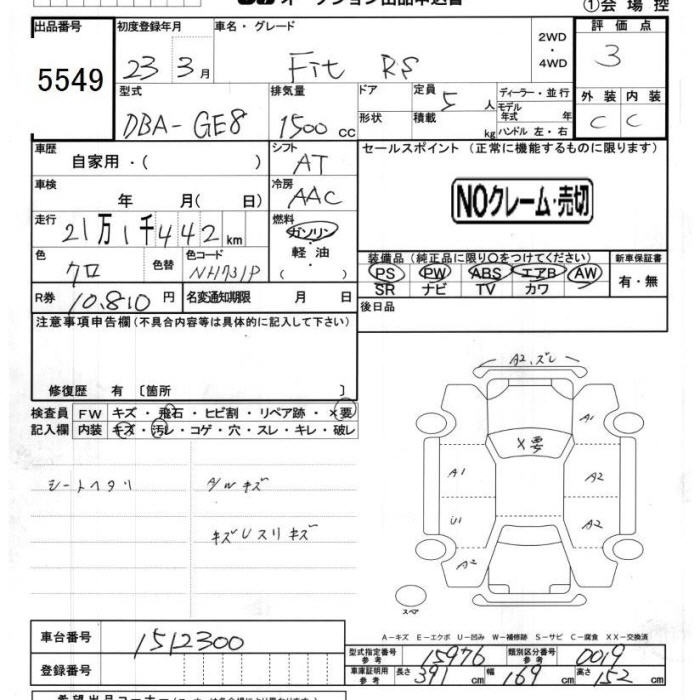 ①会場控
出品番号
5549
初度登録年月
23 3月
車名・グレード
Fit RS
2WD
・
4WD
評価点
3
外装 内装
C C
型式
DBA-GE8
排気量
1500cc
ドア
形状
定員
5人
積載
kg
ディーラー・並行
モデル
年式 年
ハンドル 左・右
車歴
自家用・( )
シフト
AT
車検
年 月( 日)
冷房
AAC
走行
21万1千442km
燃料
ガソリン
・
軽油
( ・ )
色
クロ
色替
色コード
NH731P
R券
10,810円
名変通知期限 月 日
セールスポイント(正常に機能するものに限ります)
NOクレーム・売切
装備品(純正品に限り○をつけてください)
PS PW ABS エアB AW
SR ナビ TV カワ
新車保証書
有・無
後日品
注意事項申告欄(不具合内容等は具体的に記入して下さい)
修復歴 有 〔箇所 〕
検査員
記入欄
FW キズ・飛石・ヒビ割・リペア跡・×要
内装 キズ・汚レ・コゲ・穴・スレ・キレ・破レ
シートヘタリ
A/Wキズ
キズUスリキズ
A2,ズレ
A1
×要
A1
A2
U1
A2
A2
スペア
A-キズ E-エクボ U-凹み W-補修跡 S-サビ C-腐食 XX-交換済
車台番号
1512300
登録番号
型式指定番号
参考
15976
類別区分番号
参考
0019
車庫証明用
参考
長さ 391cm
幅 169cm
高さ 152cm